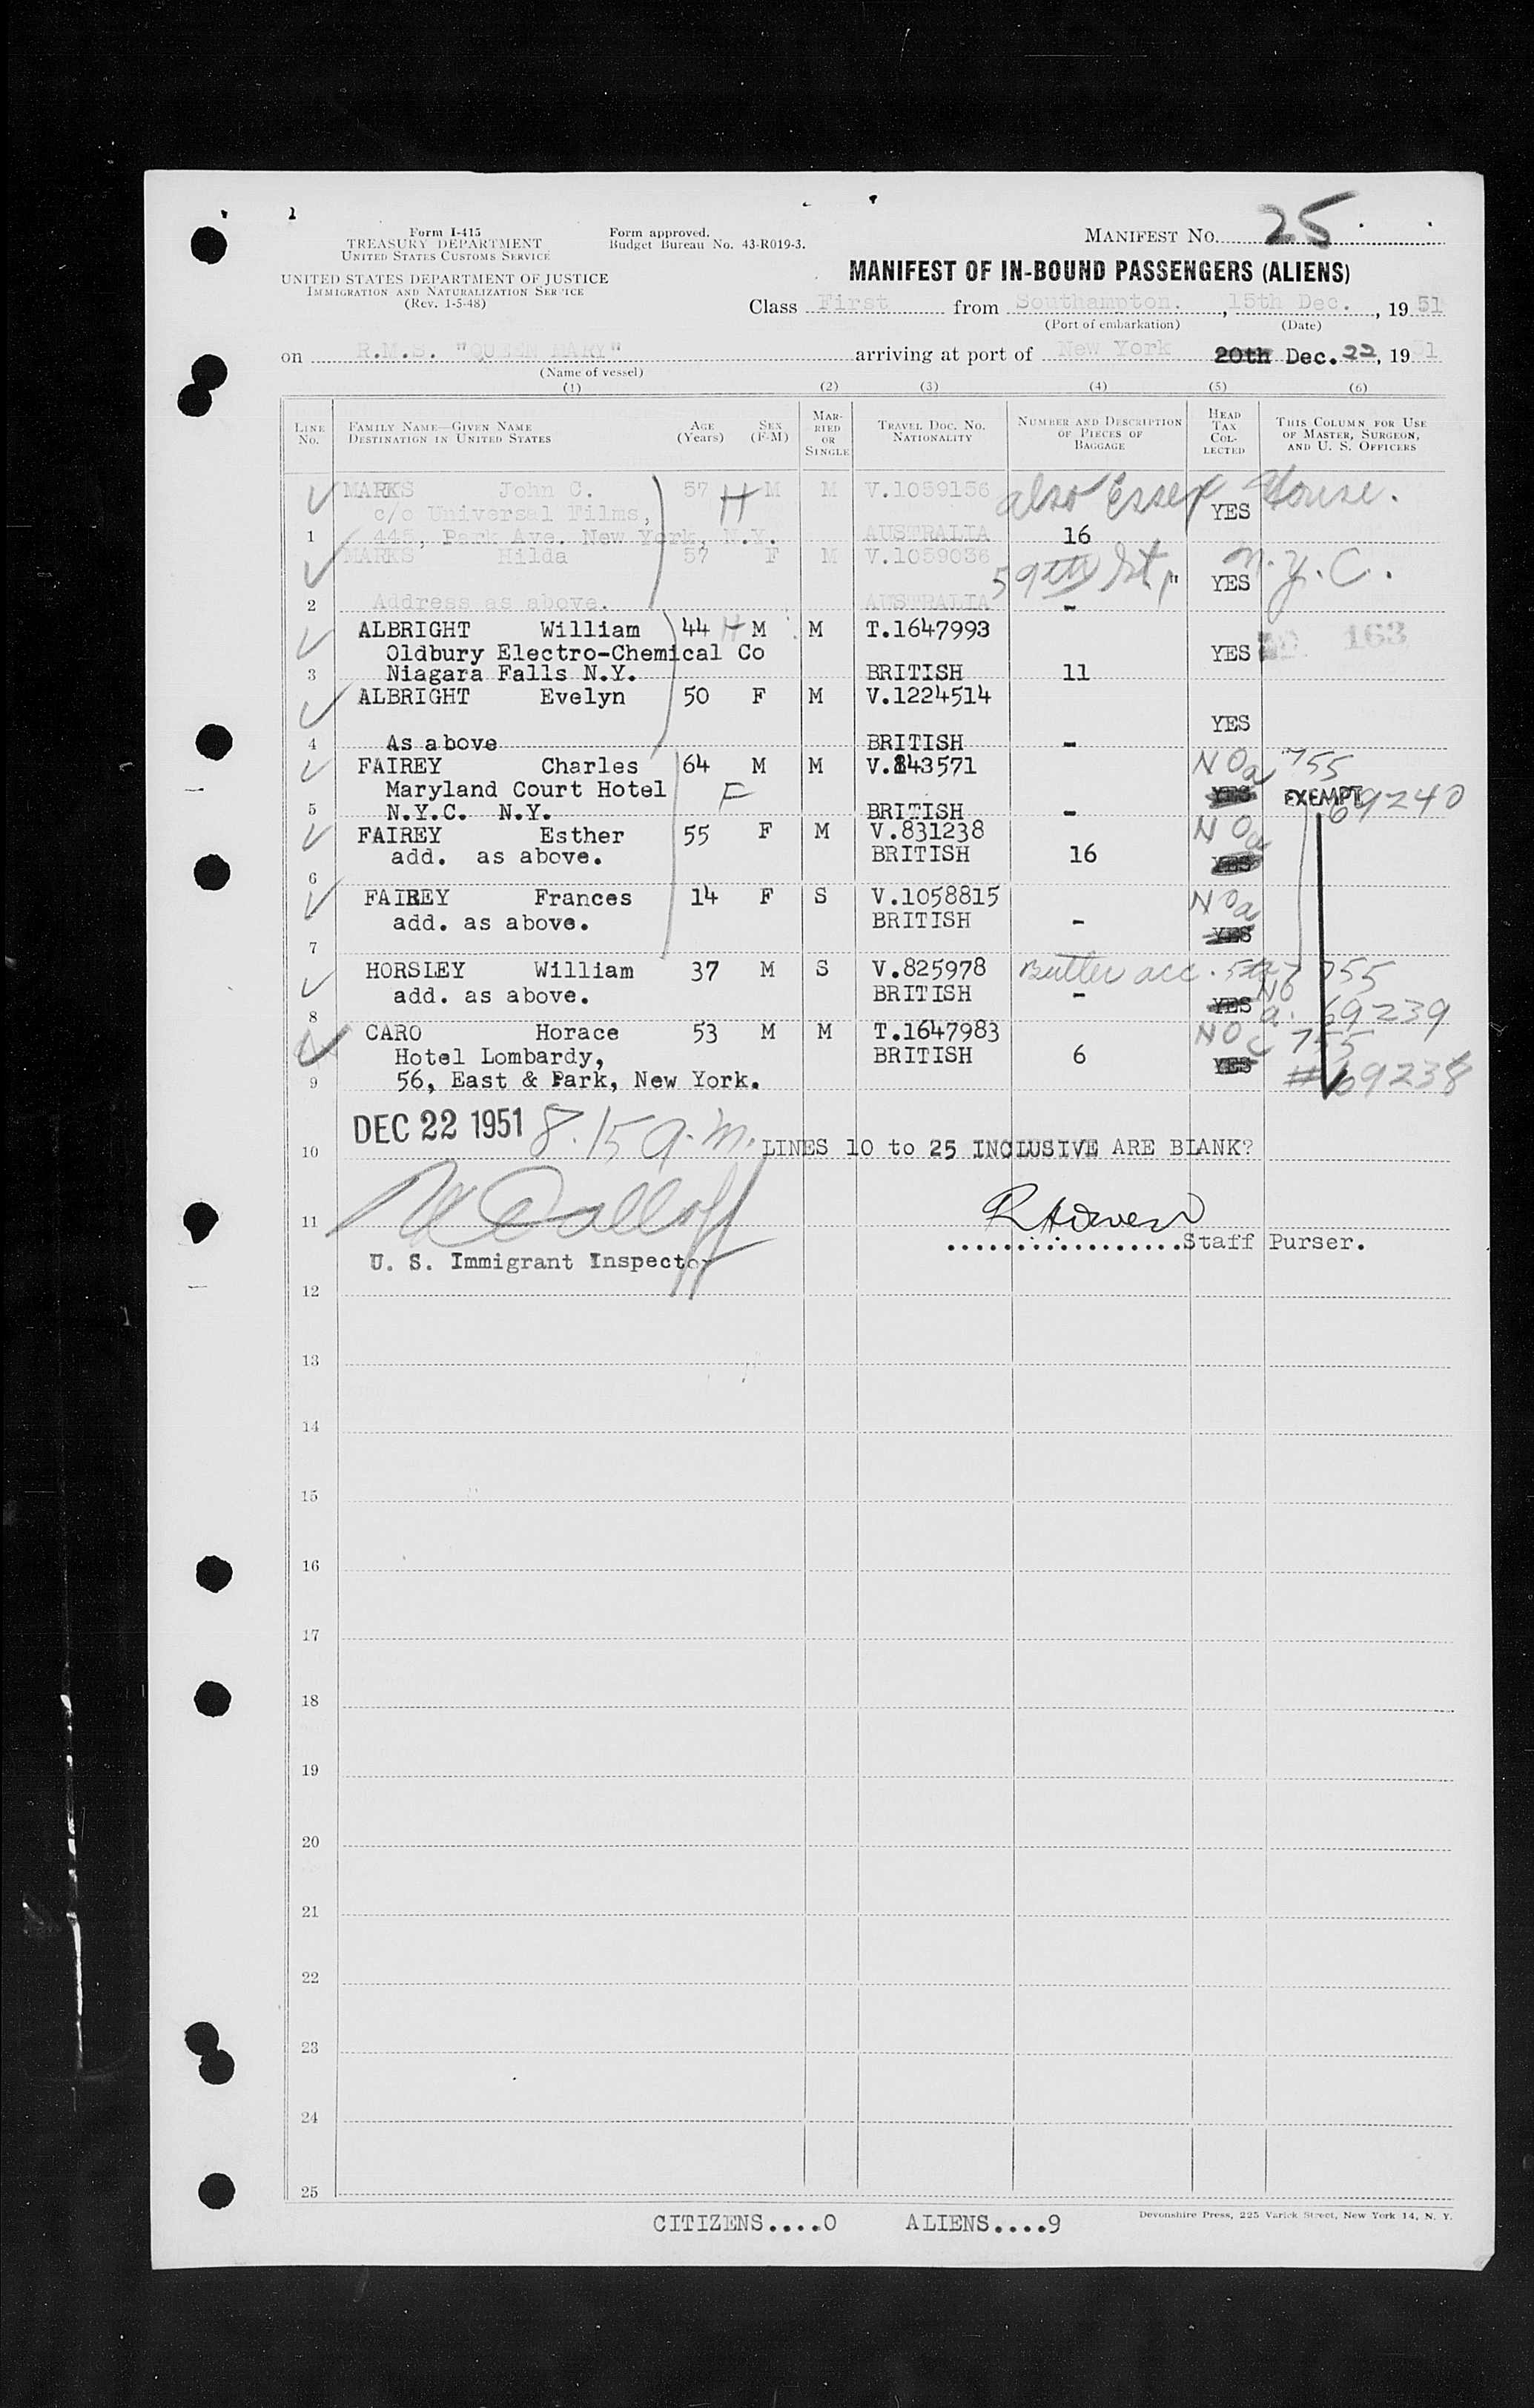 1
Form I-415
TREASURY DEPARTMENT
UNITED STATES CUSTOMS SERVICE
UNITED STATES DEPARTMENT OF JUSTICE
IMMIGRATION AND NATURALIZATION SERVICE
(Rev. 1-5-48)
Form approved.
Budget Bureau No. 43-R019-3.
MANIFEST NO. 25
MANIFEST OF IN-BOUND PASSENGERS (ALIENS)
Class First from Southampton. , 15th Dec. , 19 51
(Port of embarkation) (Date)
on R.M.S. "QUEEN MARY" arriving at port of New York 20th Dec. 22, 19 51
(Name of vessel)
(1) (2) (3) (4) (5) (6)
LINE No. FAMILY NAME—GIVEN NAME DESTINATION IN UNITED STATES AGE (Years) SEX (F-M) MARRIED OR SINGLE TRAVEL DOC. NO. NATIONALITY NUMBER AND DESCRIPTION OF PIECES OF BAGGAGE HEAD TAX COLLECTED THIS COLUMN FOR USE OF MASTER, SURGEON, AND U. S. OFFICERS
MARKS John C. 57 H M M V.1059156 also Essex House.
c/o Universal Films, YES
1 445, Park Ave. New York, N.Y. AUSTRALIA 16
MARKS Hilda 57 F M V.1059036 59th St, " YES N.Y.C.
2 Address as above. AUSTRALIA -
ALBRIGHT William 44 H M M T.1647993
Oldbury Electro-Chemical Co YES 163
3 Niagara Falls N.Y. BRITISH 11
ALBRIGHT Evelyn 50 F M V.1224514
YES
4 As above BRITISH -
FAIREY Charles 64 M M V.843571 NO a 755
Maryland Court Hotel F YES EXEMPT 69240
5 N.Y.C. N.Y. BRITISH -
FAIREY Esther 55 F M V.831238 NO a
add. as above. BRITISH 16 YES
6
FAIREY Frances 14 F S V.1058815 NO a
add. as above. BRITISH - YES
7
HORSLEY William 37 M S V.825978 Butler acc. 755
add. as above. BRITISH - YES NO a. 69239
8
CARO Horace 53 M M T.1647983 NO c 755
Hotel Lombardy, BRITISH 6 YES
9 56, East & Park, New York. #69238
DEC 22 1951 8.15 a.m.
10 LINES 10 to 25 INCLUSIVE ARE BLANK?
11
.................Staff Purser.
U. S. Immigrant Inspector
12
13
14
15
16
17
18
19
20
21
22
23
24
25
CITIZENS....0 ALIENS....9
Devonshire Press, 225 Varick Street, New York 14, N. Y.